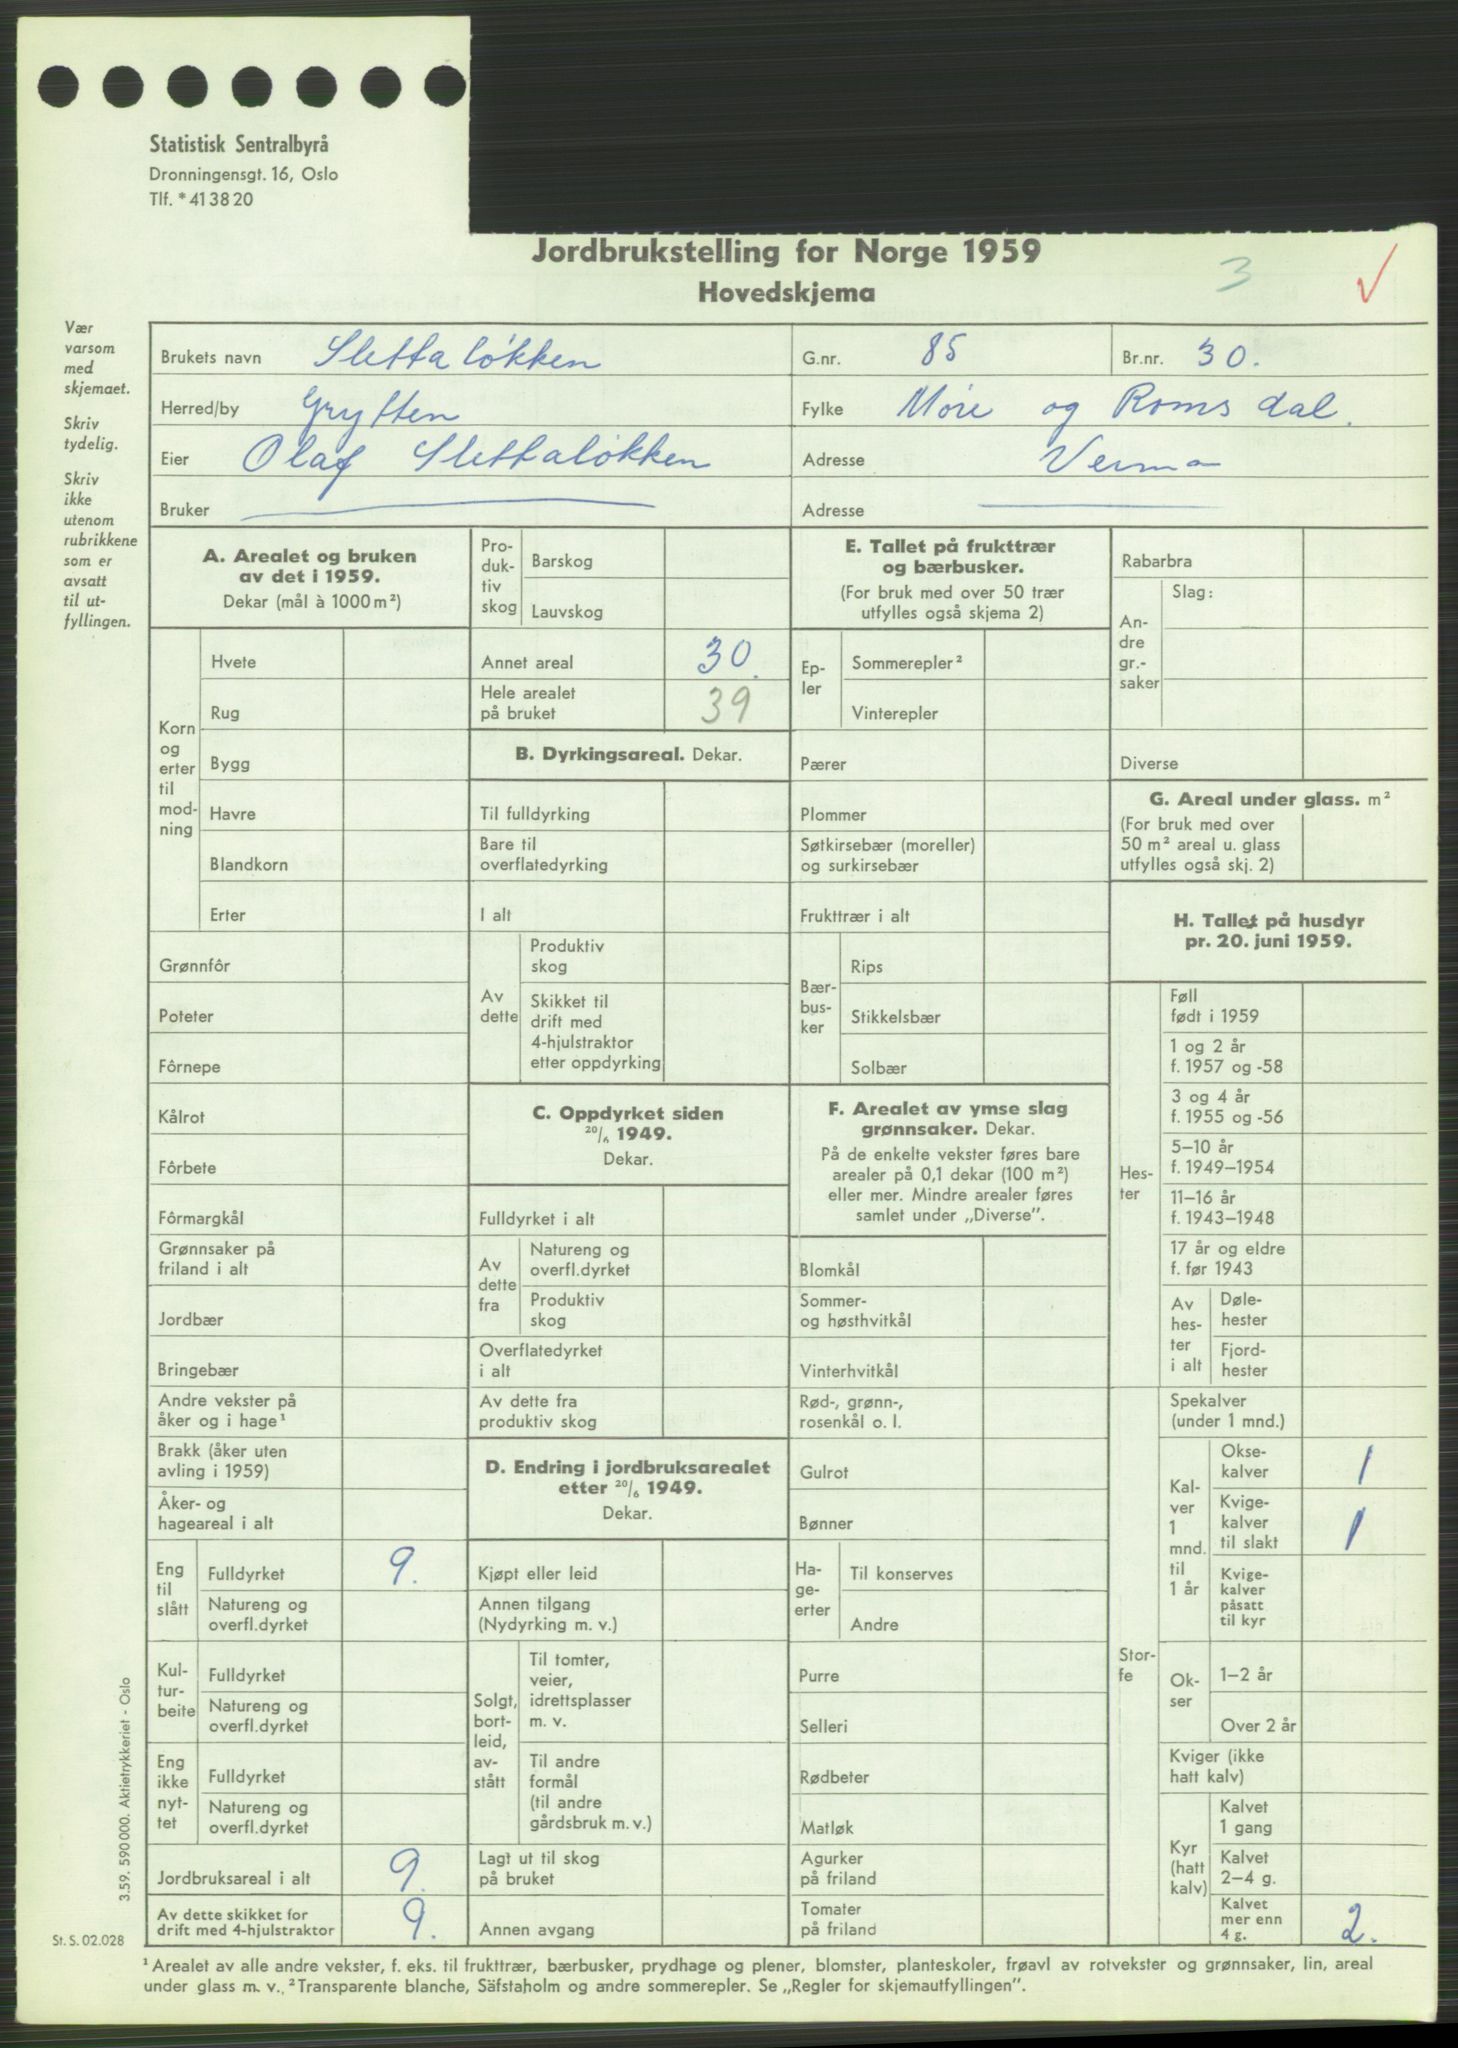 Statistisk Sentralbyrå
Dronningensgt. 16, Oslo
Tlf. * 41 38 20
Jordbrukstelling for Norge 1959
Hovedskjema
3
Vær
varsom
med
skjemaet.
Skriv
tydelig.
Skriv
ikke
utenom
rubrikkene
som er
avsatt
til ut-
fyllingen.
Brukets navn Slettaløkken G.nr. 85 Br.nr. 30.
Herred/by Grytten Fylke Møre og Romsdal.
Eier Olaf Slettaløkken Adresse Verma
Bruker Adresse
A. Arealet og bruken
av det i 1959.
Dekar (mål à 1000 m²)
Korn
og
erter
til
mod-
ning
Hvete
Rug
Bygg
Havre
Blandkorn
Erter
Grønnfôr
Poteter
Fôrnepe
Kålrot
Fôrbete
Fôrmargkål
Grønnsaker på
friland i alt
Jordbær
Bringebær
Andre vekster på
åker og i hage¹
Brakk (åker uten
avling i 1959)
Åker- og
hageareal i alt
Eng
til
slått
Fulldyrket 9.
Natureng og
overfl.dyrket
Kul-
tur-
beite
Fulldyrket
Natureng og
overfl.dyrket
Eng
ikke
nyt-
tet
Fulldyrket
Natureng og
overfl.dyrket
Jordbruksareal i alt 9.
Av dette skikket for
drift med 4-hjulstraktor 9.
Pro-
duk-
tiv
skog
Barskog
Lauvskog
Annet areal 30.
Hele arealet
på bruket 39
B. Dyrkingsareal. Dekar.
Til fulldyrking
Bare til
overflatedyrking
I alt
Av
dette
Produktiv
skog
Skikket til
drift med
4-hjulstraktor
etter oppdyrking
C. Oppdyrket siden
20/6 1949.
Dekar.
Fulldyrket i alt
Av
dette
fra
Natureng og
overfl.dyrket
Produktiv
skog
Overflatedyrket
i alt
Av dette fra
produktiv skog
D. Endring i jordbruksarealet
etter 20/6 1949.
Dekar.
Kjøpt eller leid
Annen tilgang
(Nydyrking m. v.)
Solgt,
bort-
leid,
av-
stått
Til tomter,
veier,
idrettsplasser
m. v.
Til andre
formål
(til andre
gårdsbruk m. v.)
Lagt ut til skog
på bruket
Annen avgang
E. Tallet på frukttrær
og bærbusker.
(For bruk med over 50 trær
utfylles også skjema 2)
Ep-
ler
Sommerepler²
Vinterepler
Pærer
Plommer
Søtkirsebær (moreller)
og surkirsebær
Frukttrær i alt
Bær-
bus-
ker
Rips
Stikkelsbær
Solbær
F. Arealet av ymse slag
grønnsaker. Dekar.
På de enkelte vekster føres bare
arealer på 0,1 dekar (100 m²)
eller mer. Mindre arealer føres
samlet under „Diverse”.
Blomkål
Sommer-
og høsthvitkål
Vinterhvitkål
Rød-, grønn-,
rosenkål o. l.
Gulrot
Bønner
Ha-
ge-
erter
Til konserves
Andre
Purre
Selleri
Rødbeter
Matløk
Agurker
på friland
Tomater
på friland
Rabarbra
An-
dre
gr.-
saker
Slag:
Diverse
G. Areal under glass. m²
(For bruk med over
50 m² areal u. glass
utfylles også skj. 2)
H. Tallet på husdyr
pr. 20. juni 1959.
Hes-
ter
Føll
født i 1959
1 og 2 år
f. 1957 og -58
3 og 4 år
f. 1955 og -56
5–10 år
f. 1949–1954
11–16 år
f. 1943–1948
17 år og eldre
f. før 1943
Av
hes-
ter
i alt
Døle-
hester
Fjord-
hester
Stor-
fe
Spekalver
(under 1 mnd.)
Kal-
ver
1
mnd.
til
1 år
Okse-
kalver 1
Kvige-
kalver
til slakt 1
Kvige-
kalver
påsatt
til kyr
Ok-
ser
1–2 år
Over 2 år
Kviger (ikke
hatt kalv)
Kyr
(hatt
kalv)
Kalvet
1 gang
Kalvet
2–4 g.
Kalvet
mer enn
4 g. 2.
3.59. 590 000. Aktietrykkeriet - Oslo
St. S. 02.028
¹ Arealet av alle andre vekster, f. eks. til frukttrær, bærbusker, prydhage og plener, blomster, planteskoler, frøavl av rotvekster og grønnsaker, lin, areal
under glass m. v. ² Transparente blanche, Säfstaholm og andre sommerepler. Se „Regler for skjemautfyllingen”.